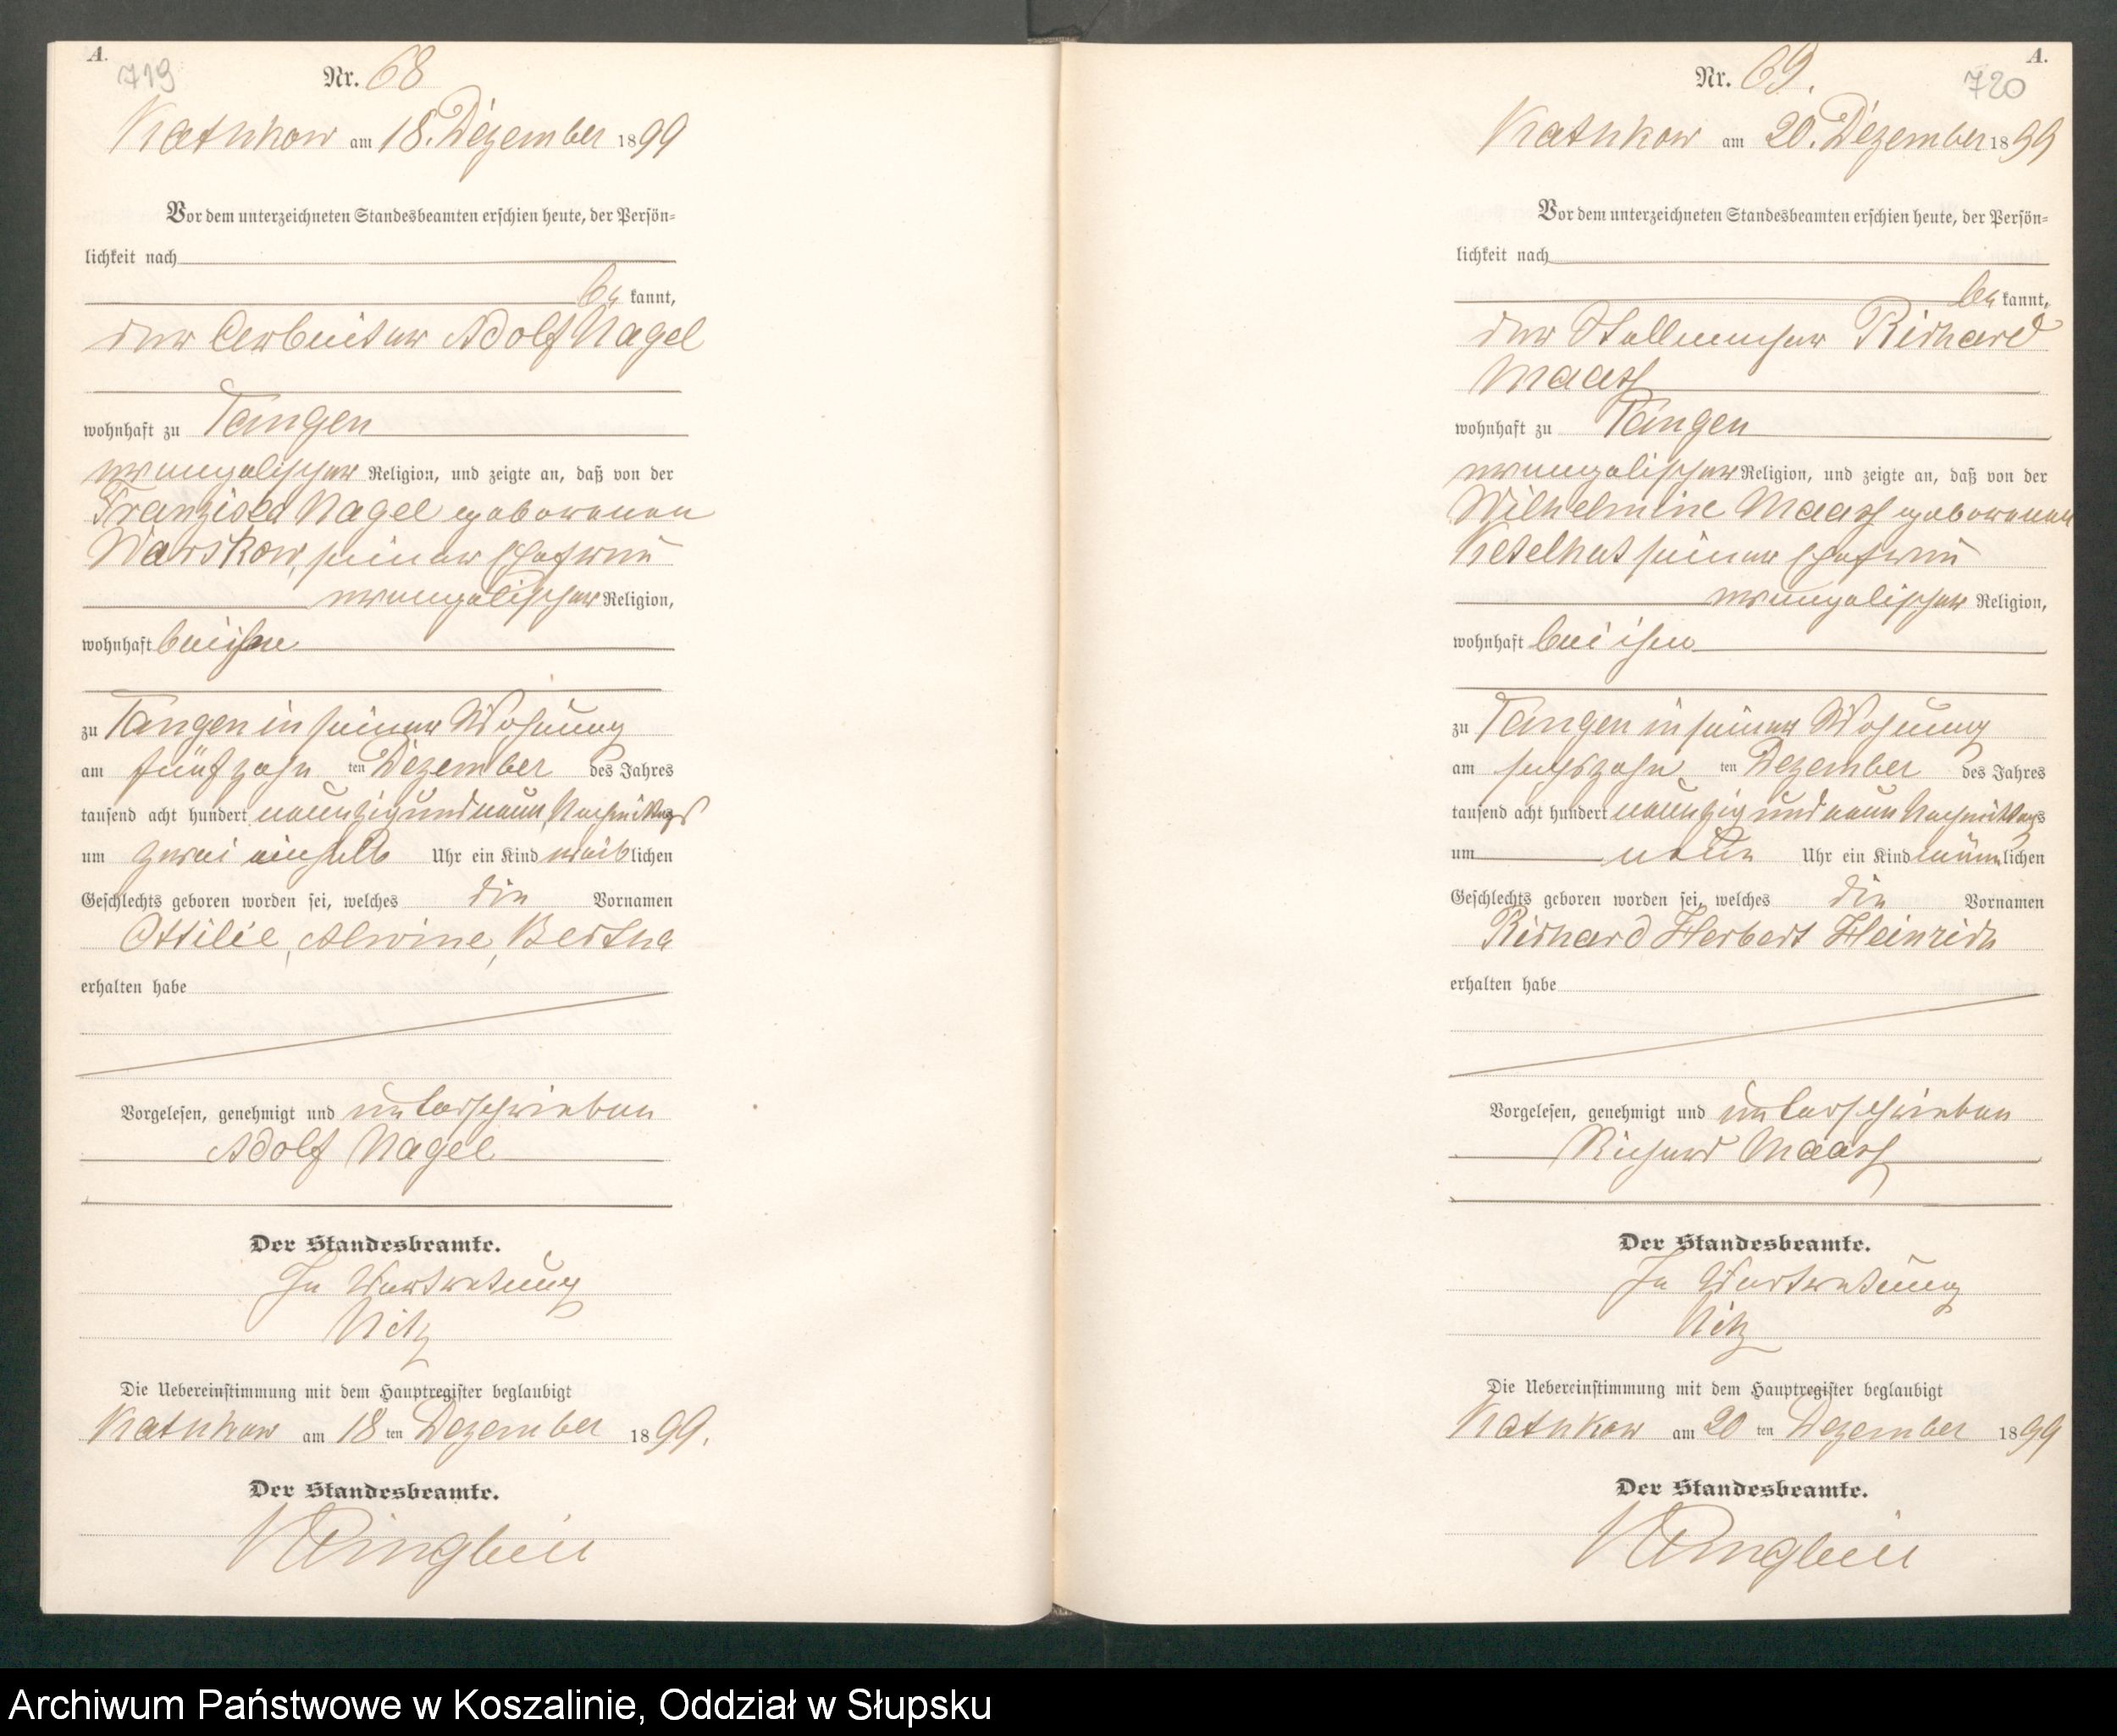 A.
719
Nr. 68
Kathkow am 18. Dezember 1899
Vor dem unterzeichneten Standesbeamten erschien heute, der Persön-
lichkeit nach
be kannt,
der Arbeiter Adolf Nagel
wohnhaft zu Tangen
evangelischer Religion, und zeigte an, daß von der
Franziska Nagel geborenen
Warskow, seiner Ehefrau
evangelischer Religion,
wohnhaft bei ihm
zu Tangen in seiner Wohnung
am fünfzehn ten Dezember des Jahres
tausend acht hundert neunzig und neun Nachmittags
um zwei einhalb Uhr ein Kind weiblichen
Geschlechts geboren worden sei, welches die Vornamen
Ottilie, Alwine, Bertha
erhalten habe
Vorgelesen, genehmigt und unterschrieben
Adolf Nagel
Der Standesbeamte.
In Vertretung
Nitz
Die Uebereinstimmung mit dem Hauptregister beglaubigt
Kathkow am 18 ten Dezember 1899.
Der Standesbeamte.
A.
720
Nr. 69.
Kathkow am 20. Dezember 1899
Vor dem unterzeichneten Standesbeamten erschien heute, der Persön-
lichkeit nach
be kannt,
der Stellmacher Richard
Maass
wohnhaft zu Tangen
evangelischer Religion, und zeigte an, daß von der
Wilhelmine Maass geborenen
Ketelhut seiner Ehefrau
evangelischer Religion,
wohnhaft bei ihm
zu Tangen in seiner Wohnung
am sechszehn ten Dezember des Jahres
tausend acht hundert neunzig und neun Nachmittags
um neun Uhr ein Kind männlichen
Geschlechts geboren worden sei, welches die Vornamen
Richard Herbert Heinrich
erhalten habe
Vorgelesen, genehmigt und unterschrieben
Richard Maass
Der Standesbeamte.
In Vertretung
Nitz
Die Uebereinstimmung mit dem Hauptregister beglaubigt
Kathkow am 20 ten Dezember 1899
Der Standesbeamte.
Archiwum Państwowe w Koszalinie, Oddział w Słupsku